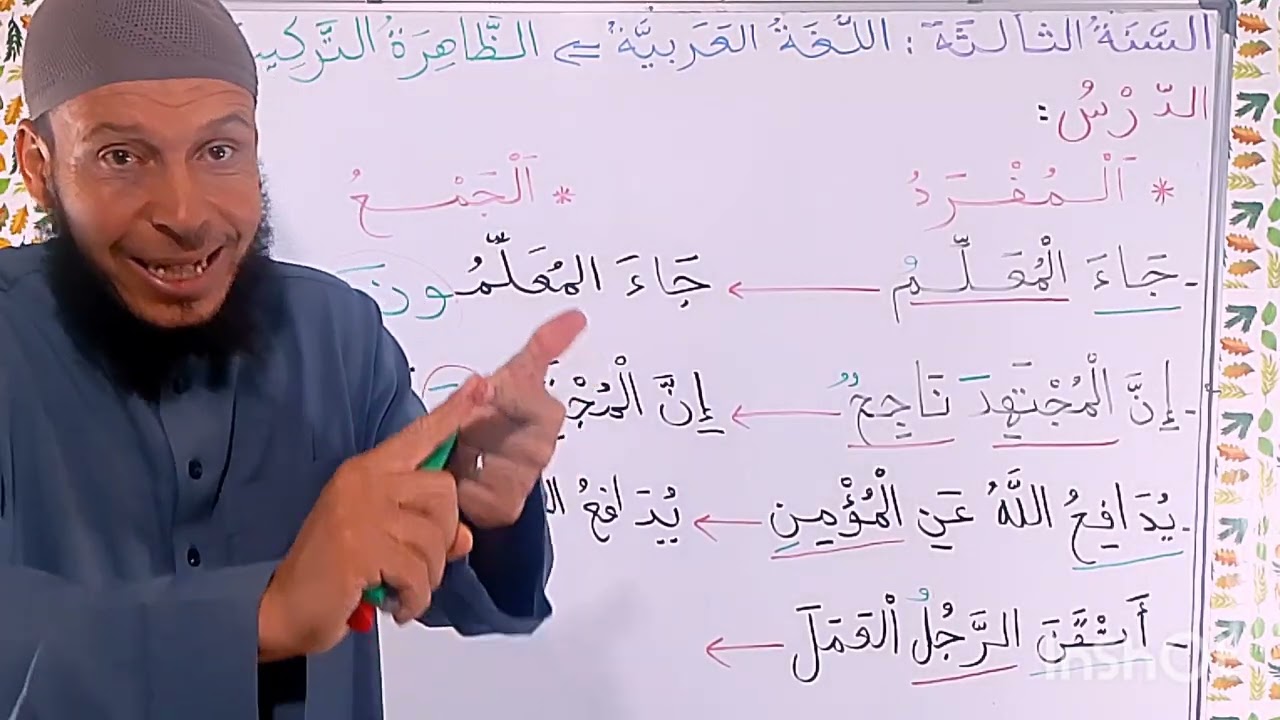 السَّنَةُ الثَّالِثَةُ : اللُّغَةُ العَرَبِيَّةُ ⇐ الظَّاهِرَةُ
الدَّرْسُ :
* اَلْمُفْرَدُ * اَلْجَمْعُ
- جَاءَ الْمُعَلِّمُ ← جَاءَ المُعَلِّمُونَ
- إِنَّ الْمُجْتَهِدَ نَاجِحٌ ← إِنَّ
- يُدَافِعُ اللَّهُ عَنِ الْمُؤْمِنِ ← يُدَافِعُ
- أَتْقَنَ الرَّجُلُ الْعَمَلَ ←